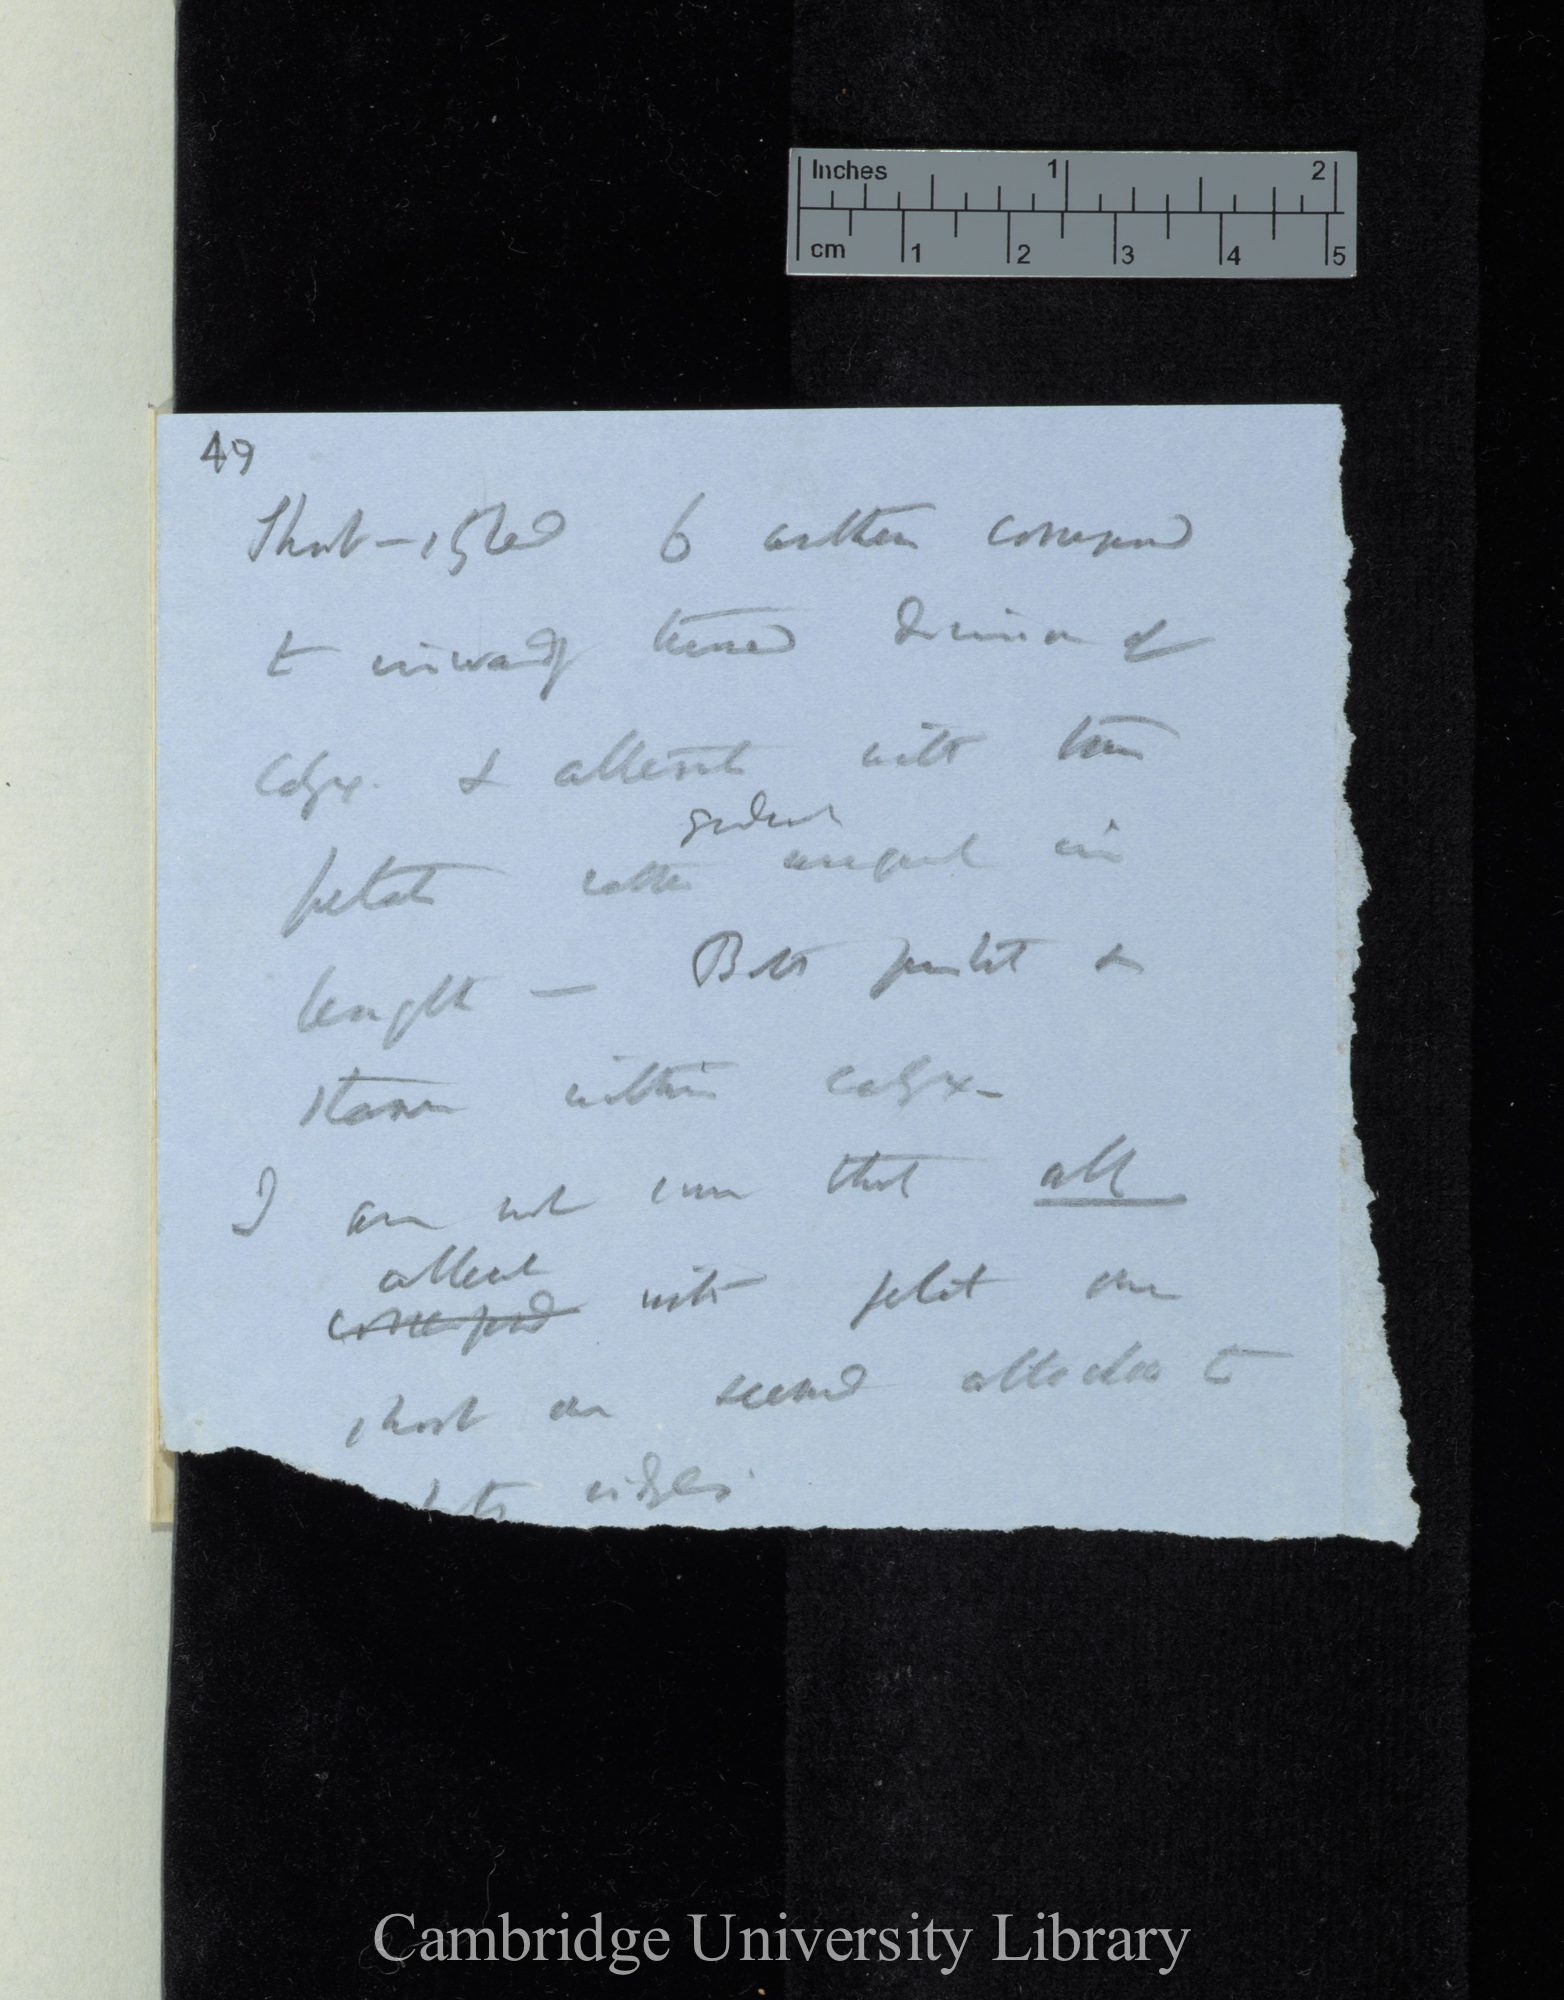 Inches 1 2
cm 1 2 3 4 5
49
Short-styled 6 anthers correspond
to inwardly turned division of
Calyx. & alternate with
petals rather unequal in
length — Both pistil &
stamen within calyx—
I am not sure that all
alternate
correspond with petals one
short one seemed attached to
ridges
Cambridge University Library